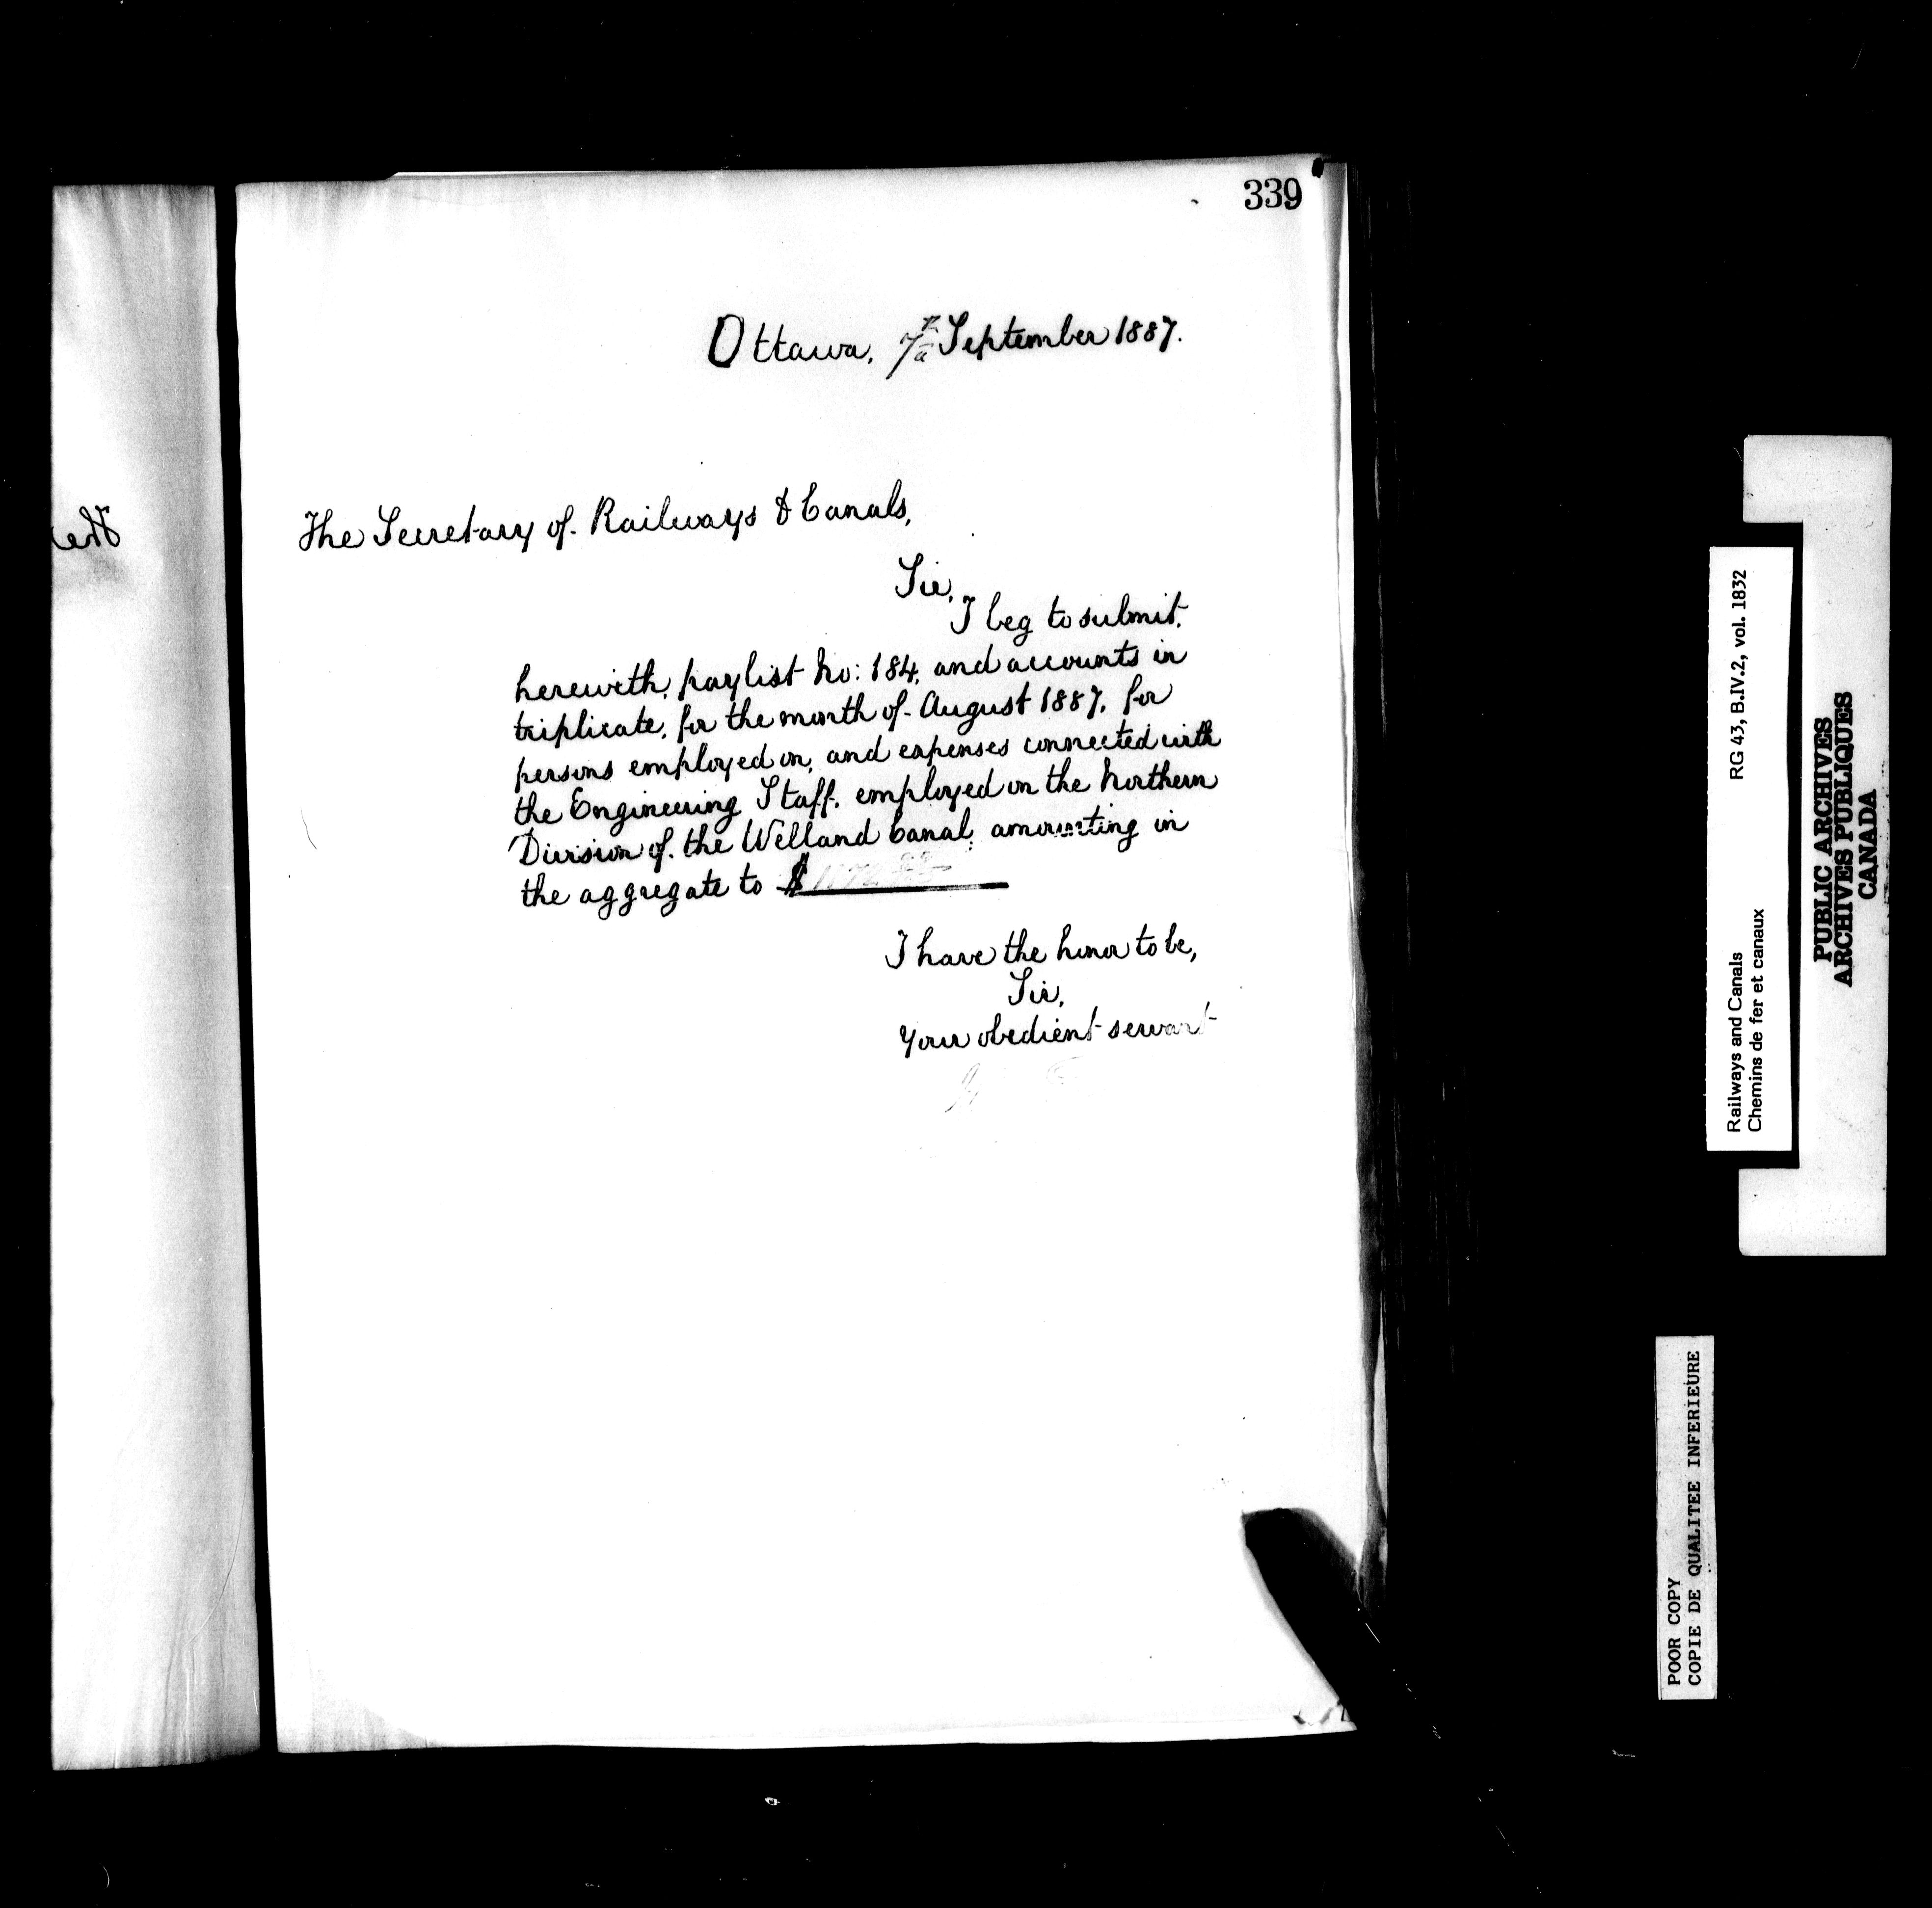 339
Ottawa, 7th September 1887.
The Secretary of Railways & Canals,
Sir,
I beg to submit,
herewith, paylist No: 184, and accounts in
triplicate, for the month of August 1887, for
persons employed on, and expenses connected with
the Engineering Staff, employed on the Northern
Division of the Welland Canal, amounting in
the aggregate to $
I have the honor to be,
Sir,
Your obedient servant
Railways and Canals RG 43, B.IV.2, vol. 1832
Chemins de fer et canaux
PUBLIC ARCHIVES
ARCHIVES PUBLIQUES
CANADA
POOR COPY
COPIE DE QUALITEE INFERIEURE